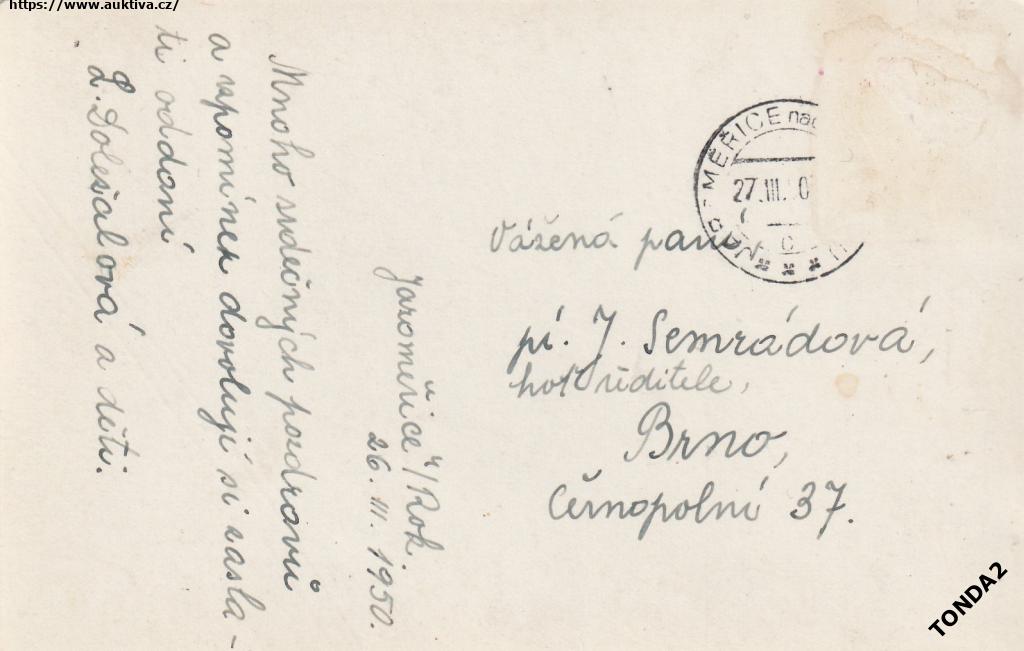 https://www.auktiva.cz/
Jaroměřice n/Rok.
26. III. 1950.
Mnoho srdečných pozdravů
a vzpomínek dovolují si zasla-
ti oddaní
L. Doležalová a děti.
MĚŘICE nad
27.III.
C
Vážená paní
pí. J. Semrádová,
choť ředitele,
Brno,
Černopolní 37.
TONDA2